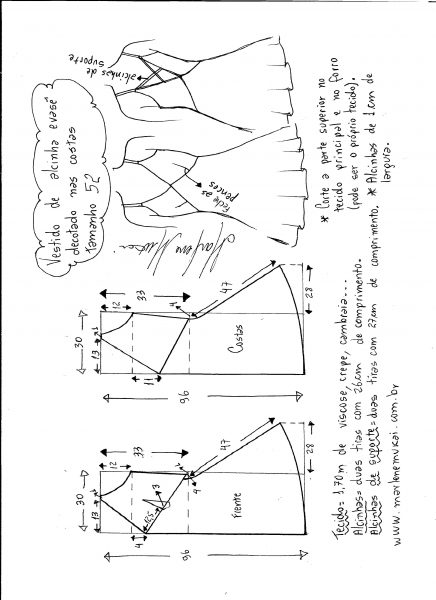 Vestido de alcinha evasê
decotado nas costas
Tamanho 52
alcinhas de
suporte
feche as
pences
Marlene Mukai
* Corte a parte superior no
tecido principal e no forro
(pode ser o próprio tecido).
* Alcinhas de 1cm de
largura.
30
13
12
33
4
47
28
11
96
Costas
30
13
12
33
4
12,5
3
9
47
28
96
Frente
Tecido= 1,70m de viscose, crepe, cambraia...
Alcinhas= duas tiras com 26cm de comprimento.
Alcinhas de suporte= duas tiras com 27cm de comprimento.
www.marlenemukai.com.br